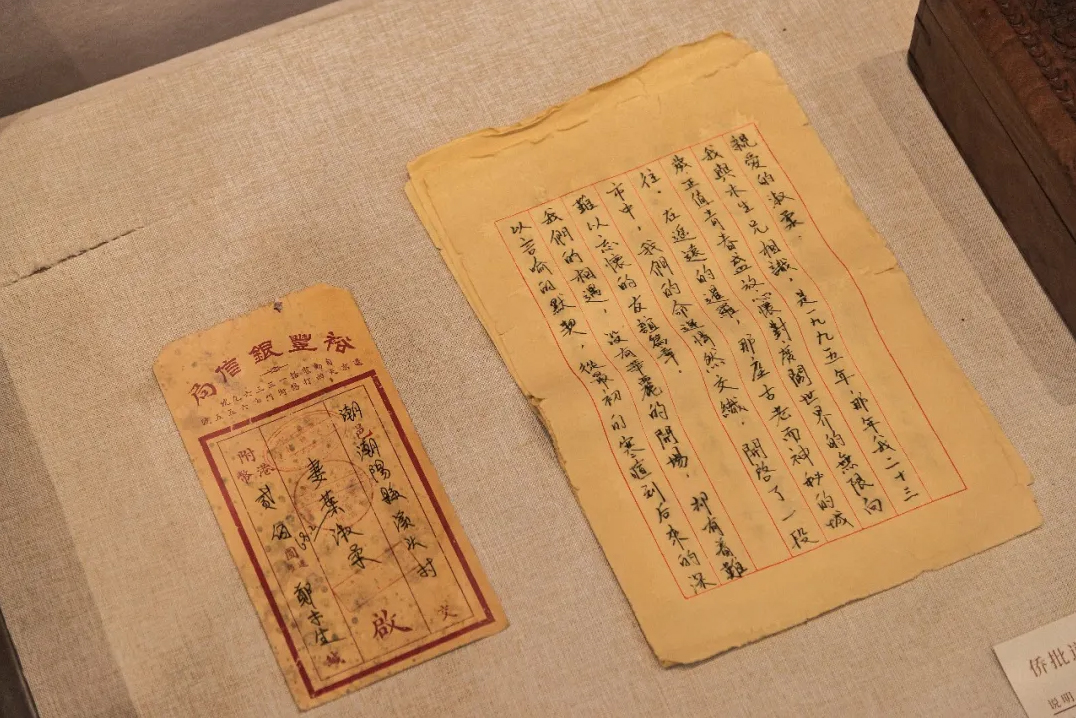 豐銀信局
潮邑潮陽縣村 交
妻葉淑柔 啟
附港幣貳佰圓 鄭木生 緘
親愛的叔柔
我與木生兄相識，是一九九五年，那年我二十三
歲正值青春盛放心懷對廣闊世界的無限向
往。在遥遠的暹羅，那座古老而神秘的城
市中，我們的命運悄然交織，開啓了一段
難以忘懷的友誼篇章。
我們的相遇，没有華麗的開場，却有着難
以言喻的默契，從最初的寒暄到后來的深
侨批
说明